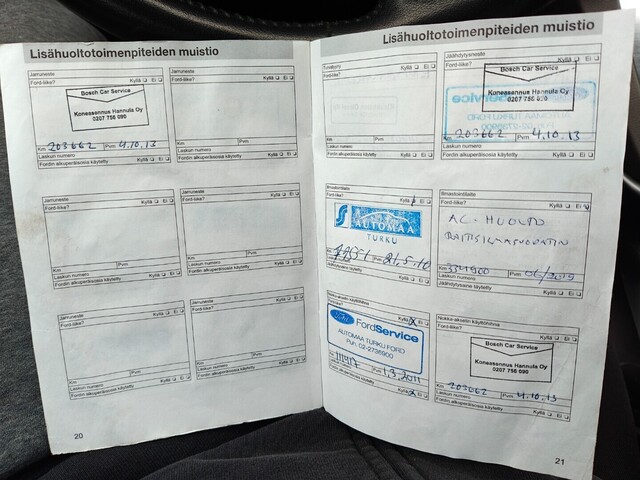 Lisähuoltotoimenpiteiden muistio
Jarruneste
Ford-liike? Kyllä ❑ Ei ❑
Bosch Car Service
Konessennus Hannula Oy
0207 756 690
Km 203662 Pvm 4.10.13
Laskun numero
Fordin alkuperäisosia käytetty Kyllä ❑ Ei ❑
Jarruneste
Ford-liike? Kyllä ❑ Ei ❑
Km Pvm
Laskun numero
Fordin alkuperäisosia käytetty Kyllä ❑ Ei ❑
Jarruneste
Ford-liike? Kyllä ❑ Ei ❑
Km Pvm
Laskun numero
Fordin alkuperäisosia käytetty Kyllä ❑ Ei ❑
Jarruneste
Ford-liike? Kyllä ❑ Ei ❑
Km Pvm
Laskun numero
Fordin alkuperäisosia käytetty Kyllä ❑ Ei ❑
Jarruneste
Ford-liike? Kyllä ❑ Ei ❑
Km Pvm
Laskun numero
Fordin alkuperäisosia käytetty Kyllä ❑ Ei ❑
Jarruneste
Ford-liike? Kyllä ❑ Ei ❑
Km Pvm
Laskun numero
Fordin alkuperäisosia käytetty Kyllä ❑ Ei ❑
20
Lisähuoltotoimenpiteiden muistio
Turvatyyny
Ford-liike? Kyllä ❑ Ei ❑
Km Pvm
Laskun numero
Fordin alkuperäisosia käytetty Kyllä ❑ Ei ❑
Jäähdytysneste
Ford-liike? Kyllä ❑ Ei ❑
Bosch Car Service
Konessennus Hannula Oy
0207 756 690
Km 203662 Pvm 4.10.13
Laskun numero
Fordin alkuperäisosia käytetty Kyllä ❑ Ei ❑
Ilmastointilaite
Ford-liike? Kyllä Ei ❑
AUTOMAA
TURKU
Jäähdytysaine lisätty Kyllä ❑ Ei ❑
Ilmastointilaite
Ford-liike? Kyllä ❑ Ei
AC-HUOLTO
RAITISILMASUODATIN
Km 334900 Pvm 06/2019
Laskun numero
Jäähdytysaine lisätty Kyllä ❑ Ei ❑
Ford-liike? Kyllä Ei ❑
Ford FordService
AUTOMAA TURKU FORD
Puh. 02-2736900
Km 111417 Pvm 1.3.2011
Laskun numero
Fordin alkuperäisosia käytetty Kyllä Ei ❑
Nokka-akselin käyttöhihna
Ford-liike? Kyllä ❑ Ei ❑
Bosch Car Service
Konessennus Hannula Oy
0207 756 690
Km 203662 Pvm 4.10.13
Laskun numero
Fordin alkuperäisosia käytetty Kyllä ❑ Ei ❑
21